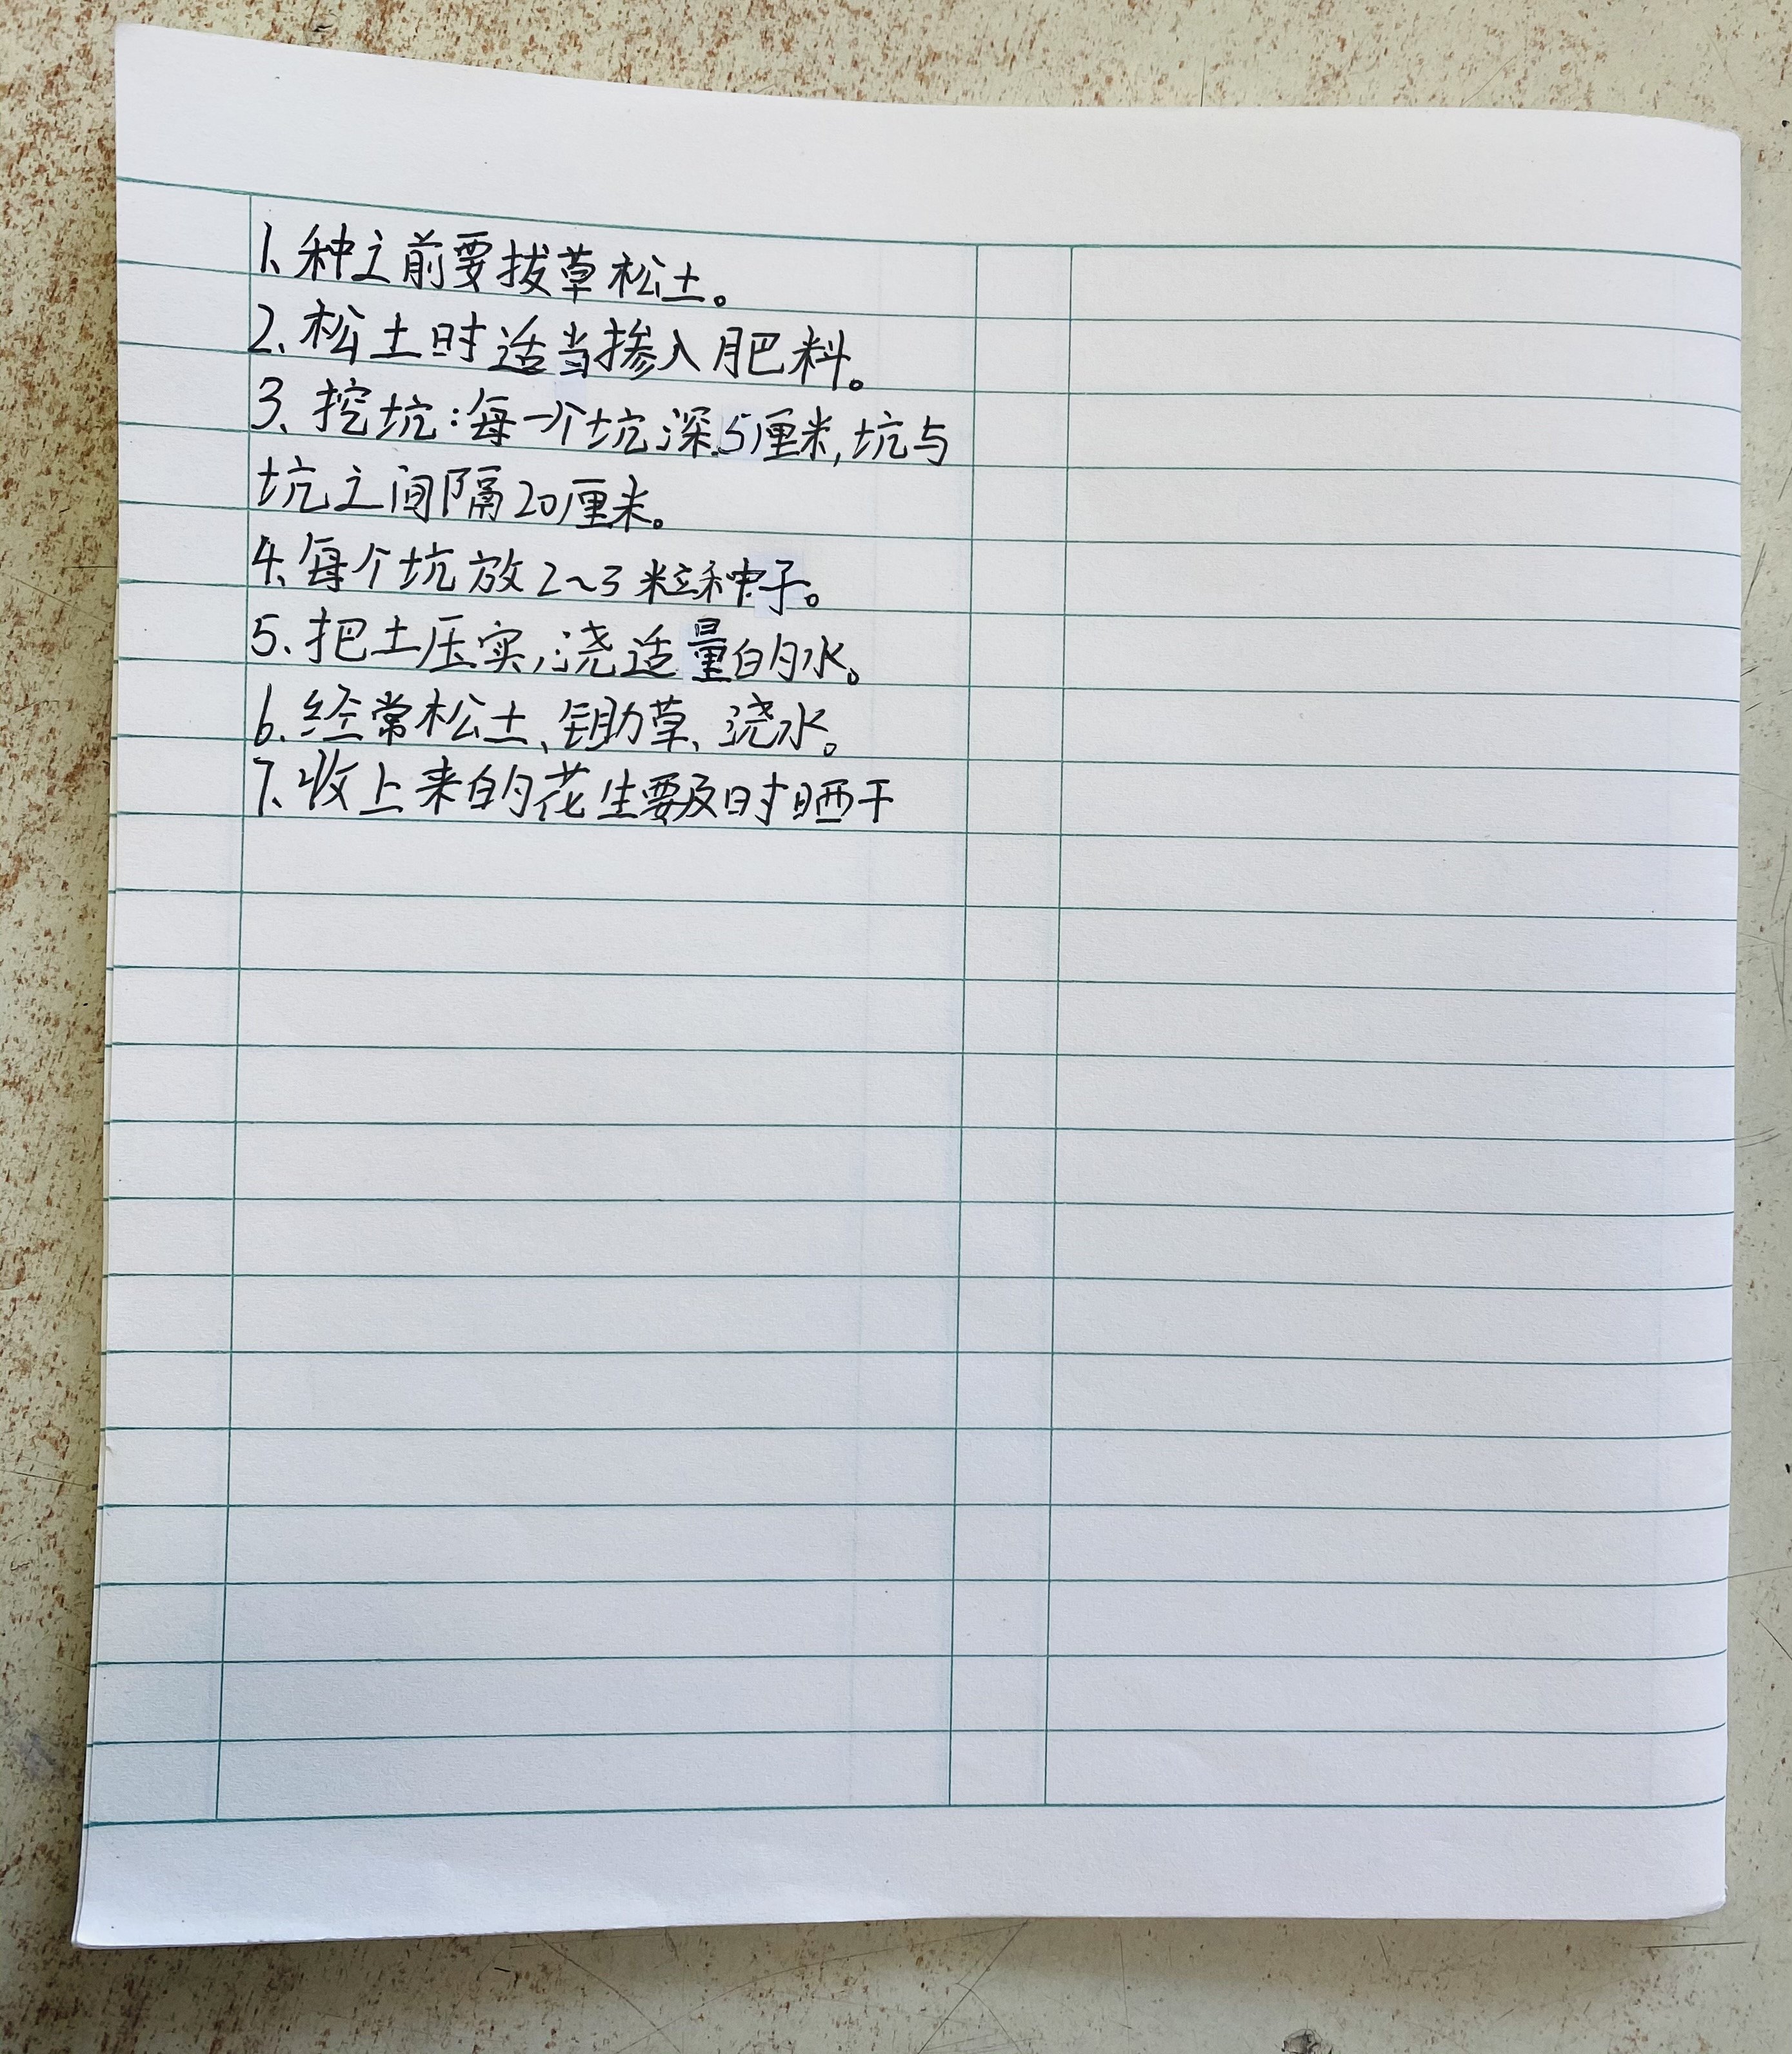 1、种之前要拔草松土。
2、松土时适当掺入肥料。
3、挖坑：每一个坑深5厘米，坑与
坑之间隔20厘米。
4、每个坑放2~3粒种子。
5、把土压实，浇适量的水。
6、经常松土、锄草、浇水。
7、收上来的花生要及时晒干